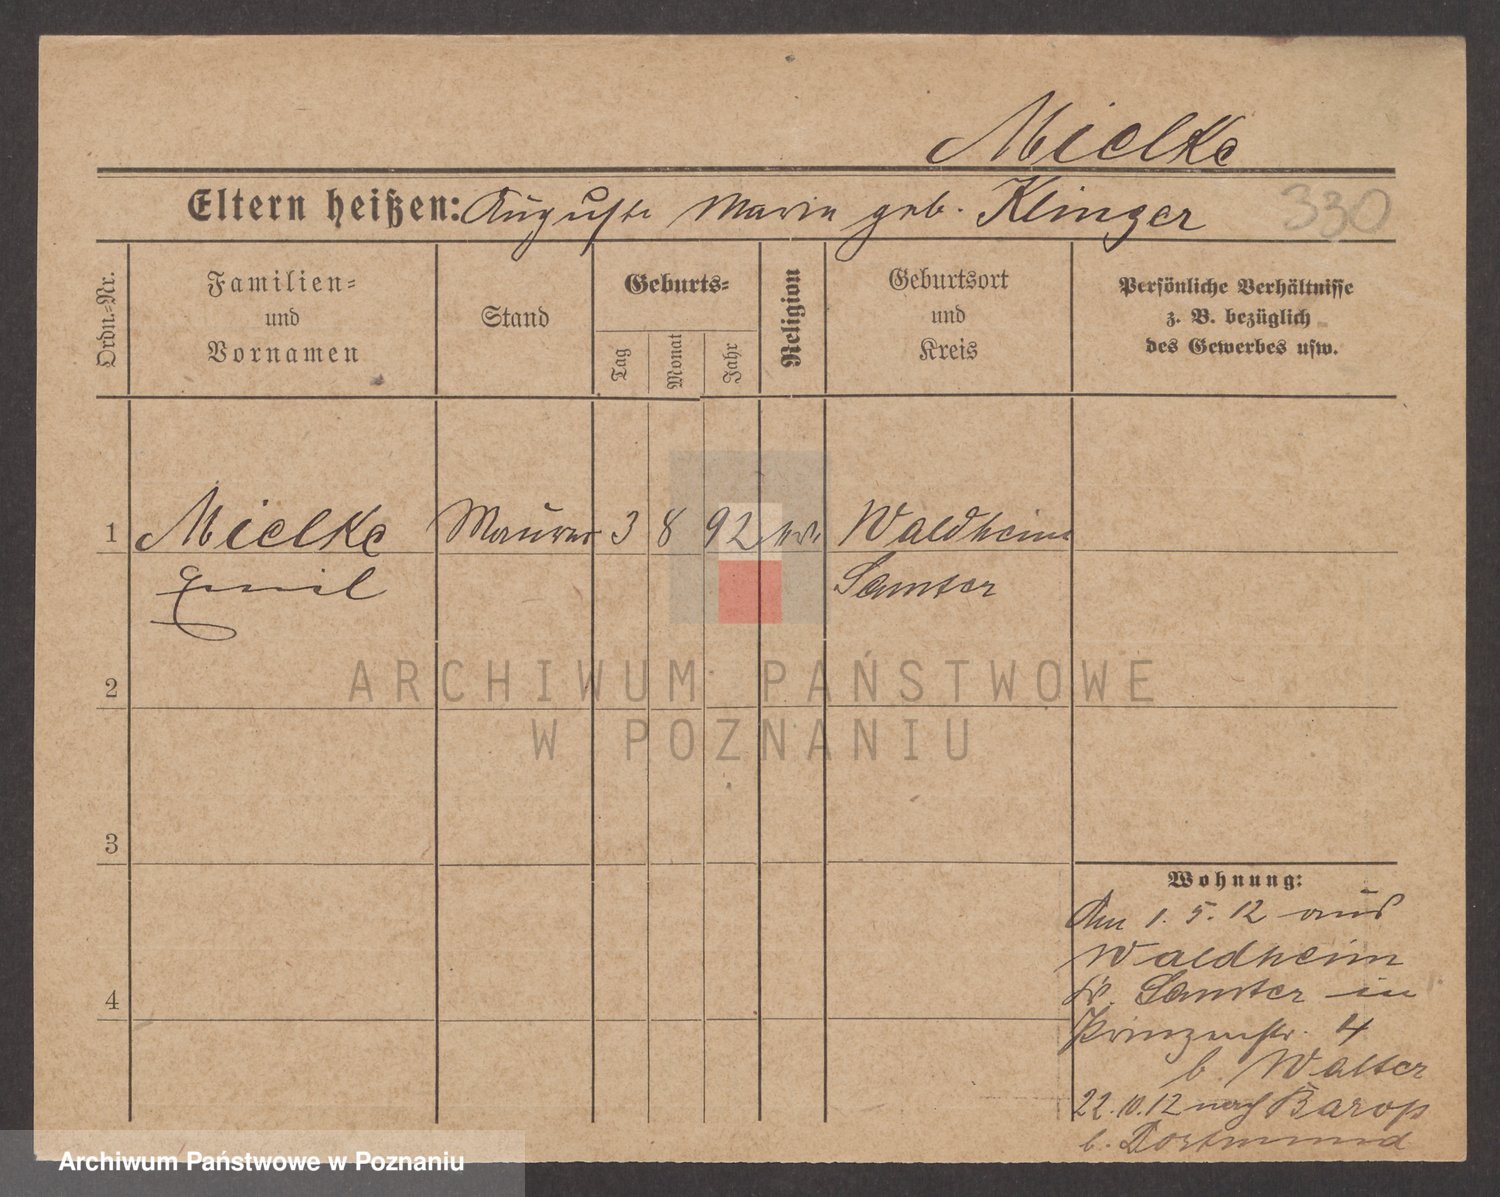 Mielke
Eltern heißen: Auguste Maria geb. Klinger 330
Ordn.-Nr.
Familien-
und
Vornamen
Stand
Geburts-
Tag
Monat
Jahr
Religion
Geburtsort
und
Kreis
Persönliche Verhältnisse
z. B. bezüglich
des Gewerbes usw.
1 Mielke Maurer 3 8 92 ev. Waldheim
Emil Samter
2
3
4
Wohnung:
Am 1. 5. 12 aus
Waldheim
Kr. Samter in
Prinzenstr. 4
b. Walter
22.10.12 nach Barop
b. Dortmund
ARCHIWUM PAŃSTWOWE
W POZNANIU
Archiwum Państwowe w Poznaniu